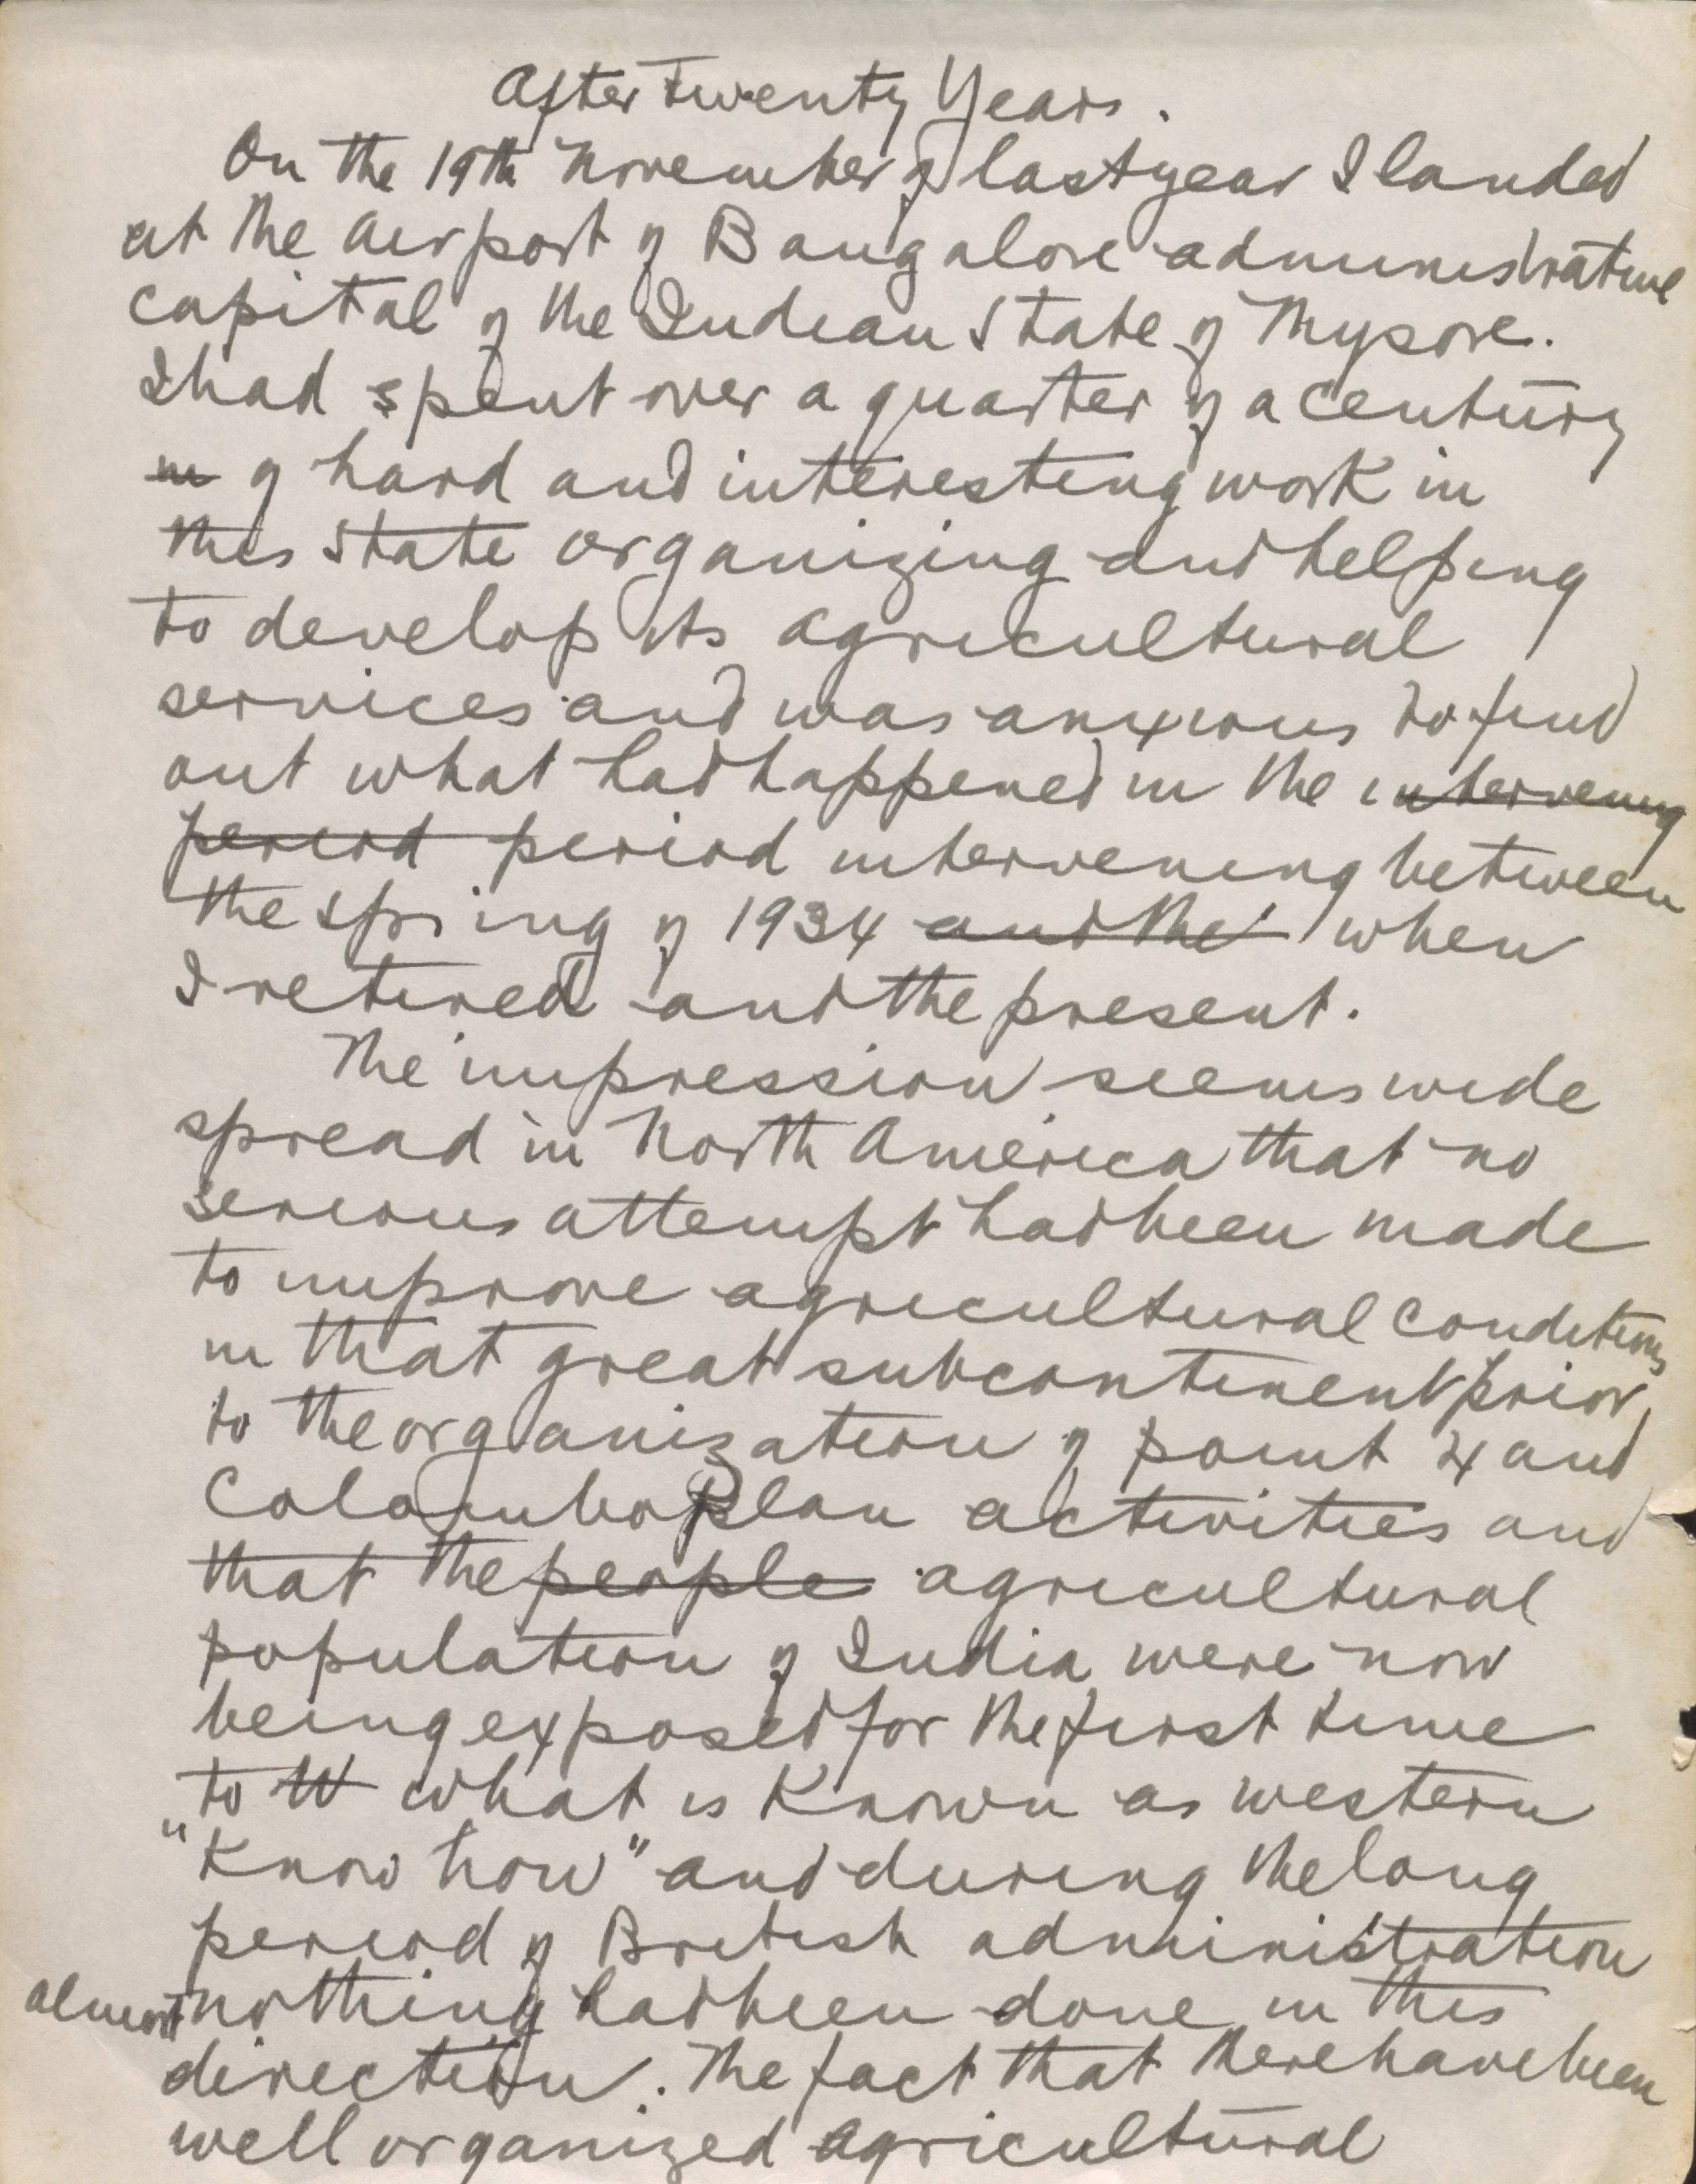 After Twenty Years.
On the 19th November of last year I landed
at the airport of Bangalore administrative
capital of the Indian State of Mysore.
I had spent over a quarter of a century
in of hard and interesting work in
this State organizing and helping
to develop its agricultural
services and was anxious to find
out what had happened in the intervening
period period intervening between
the spring of 1934 and the when
I retired and the present.
The impression seems wide
spread in North America that no
serious attempt had been made
to improve agricultural conditions
in that great subcontinent prior
to the organization of point 4 and
Colombo plan activities and
that the people agricultural
population of India were now
being exposed for the first time
to W what is known as western
"Know how" and during the long
period of British administration
almost nothing had been done in this
direction. The fact that there have been
well organized agricultural